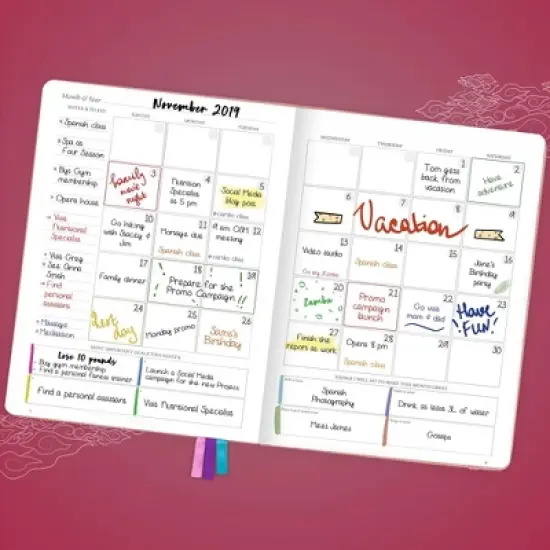 November 2019
SUNDAY
MONDAY
TUESDAY
WEDNESDAY
THURSDAY
FRIDAY
SATURDAY
Spanish class
Spa at
Four Season
Buy Gym
membership
Opera house
Visit
Nutritional
Specialist
Visit Greg
See Anna
Smith
Find
personal
assistant
Massage
Meditation
3
family
movie
night
4
Nutrition
Specialist
at 5 pm
5
Social Media
blog post
cardio class
10
Go hiking
with Stacey &
Jim
11
Massage due
Spanish class
12
9 am OAM
meeting
cardio class
17
Family dinner
18
19
Prepare for the
Promo Campaign!!
24
Rest
day
25
Monday promo
26
Sam's
Birthday
1
Tom gets
back from
vacation
2
Have
adventure
6
7
8
9
Vacation
13
Video audio
14
Spanish class
15
16
Jane's
Birthday
party
20
Zumba
21
Promo
campaign
launch
22
Go visit
mum & dad
23
Have
FUN!
27
Finish the
reports at work
28
Opera 8 pm
Spanish class
29
30
Lose 10 pounds
Buy gym membership
Find a personal fitness trainer
Launch a Social Media
campaign for the new Project
Find a personal assistant
Visit Nutritional Specialist
Spanish
Photography
Drink at least 3L of water
Meet James
Gossips